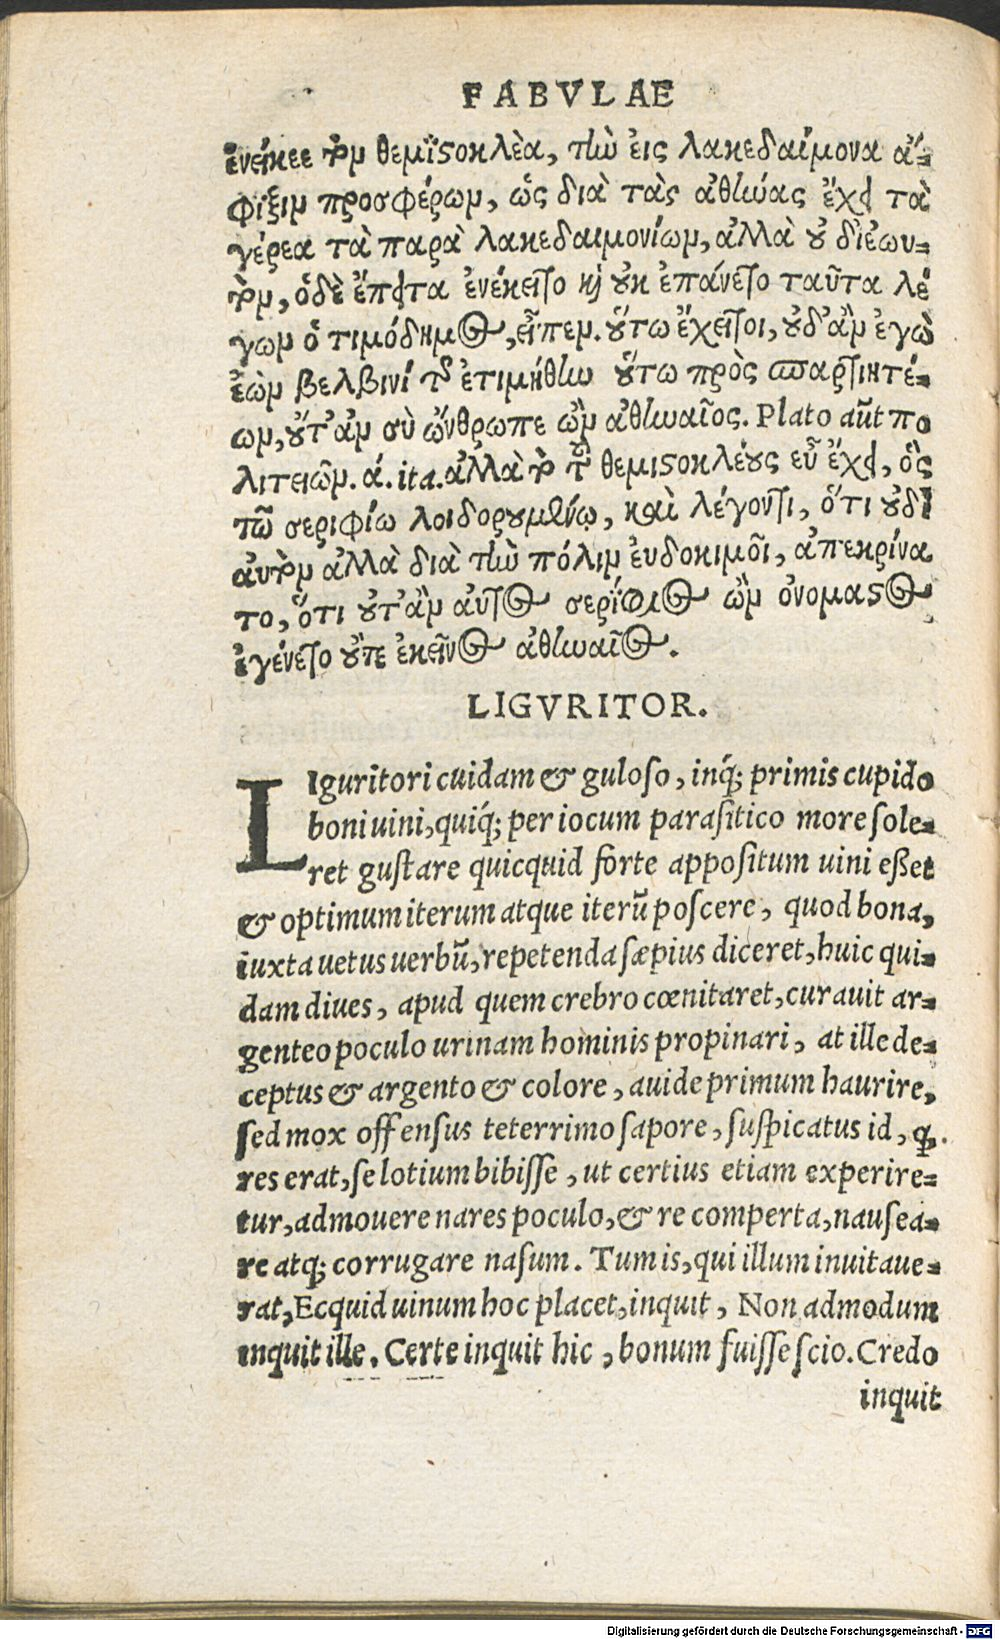 FABVLAE
ἐνείκεε τὸν θεμιστοκλέα, τὴν εἰς λακεδαίμονα ἄ-
φιξιν προσφέρων, ὡς διὰ τὰς ἀθήνας ἔχει τὰ
γέρεα τὰ παρὰ λακεδαιμονίων, ἀλλὰ οὐ διέωυ-
τὸν, ὁδὲ ἔπειτα ἐνέκειτο καὶ οὐκ ἐπάυετο ταῦτα λέ
γων ὁ τιμόδημος, εἶπεν. οὕτω ἔχει τοι, οὐδ' ἂν ἐγὼ
ἐὼν βελβινί της ἐτιμήθην οὕτω πρὸς σπαρτιητέ-
ων, οὔτ' ἂν σὺ ὤνθρωπε ὢν ἀθηναῖος. Plato aūt πο
λιτειῶν. ά. ita. ἀλλὰ τὸ τοῦ θεμιστοκλέους εὖ ἔχει, ὃς
τῶ σεριφίω λοιδορουμένῳ, καὶ λέγοντι, ὅτι οὐδι
ἀυτὸν ἀλλὰ διὰ τὴν πόλιν ἐυδοκιμοῖ, ἀπεκρίνα
το, ὅτι οὔτ' ἂν ἀυτὸς σερίφιος ὢν ὀνομαστὸς
ἐγένετο οὔτε ἐκεῖνος ἀθηναῖος.
LIGVRITOR.
LIguritori cuidam & guloso, inq́; primis cupido
boni uini, quiq́; per iocum parasitico more sole-
ret gustare quicquid forte appositum uini eßet
& optimum iterum atque iterū poscere, quod bona,
iuxta uetus uerbū, repetenda sæpius diceret, huic qui-
dam diues, apud quem crebro cœnitaret, curauit ar-
genteo poculo urinam hominis propinari, at ille de-
ceptus & argento & colore, auide primum haurire,
sed mox offensus teterrimo sapore, suspicatus id, ꝙ.
res erat, se lotium bibisse, ut certius etiam experire-
tur, admouere nares poculo, & re comperta, nausea-
re atq; corrugare nasum. Tum is, qui illum inuitaue-
rat, Ecquid uinum hoc placet, inquit, Non admodum
inquit ille. Certe inquit hic, bonum fuisse scio. Credo
inquit
Digitalisierung gefördert durch die Deutsche Forschungsgemeinschaft - DFG